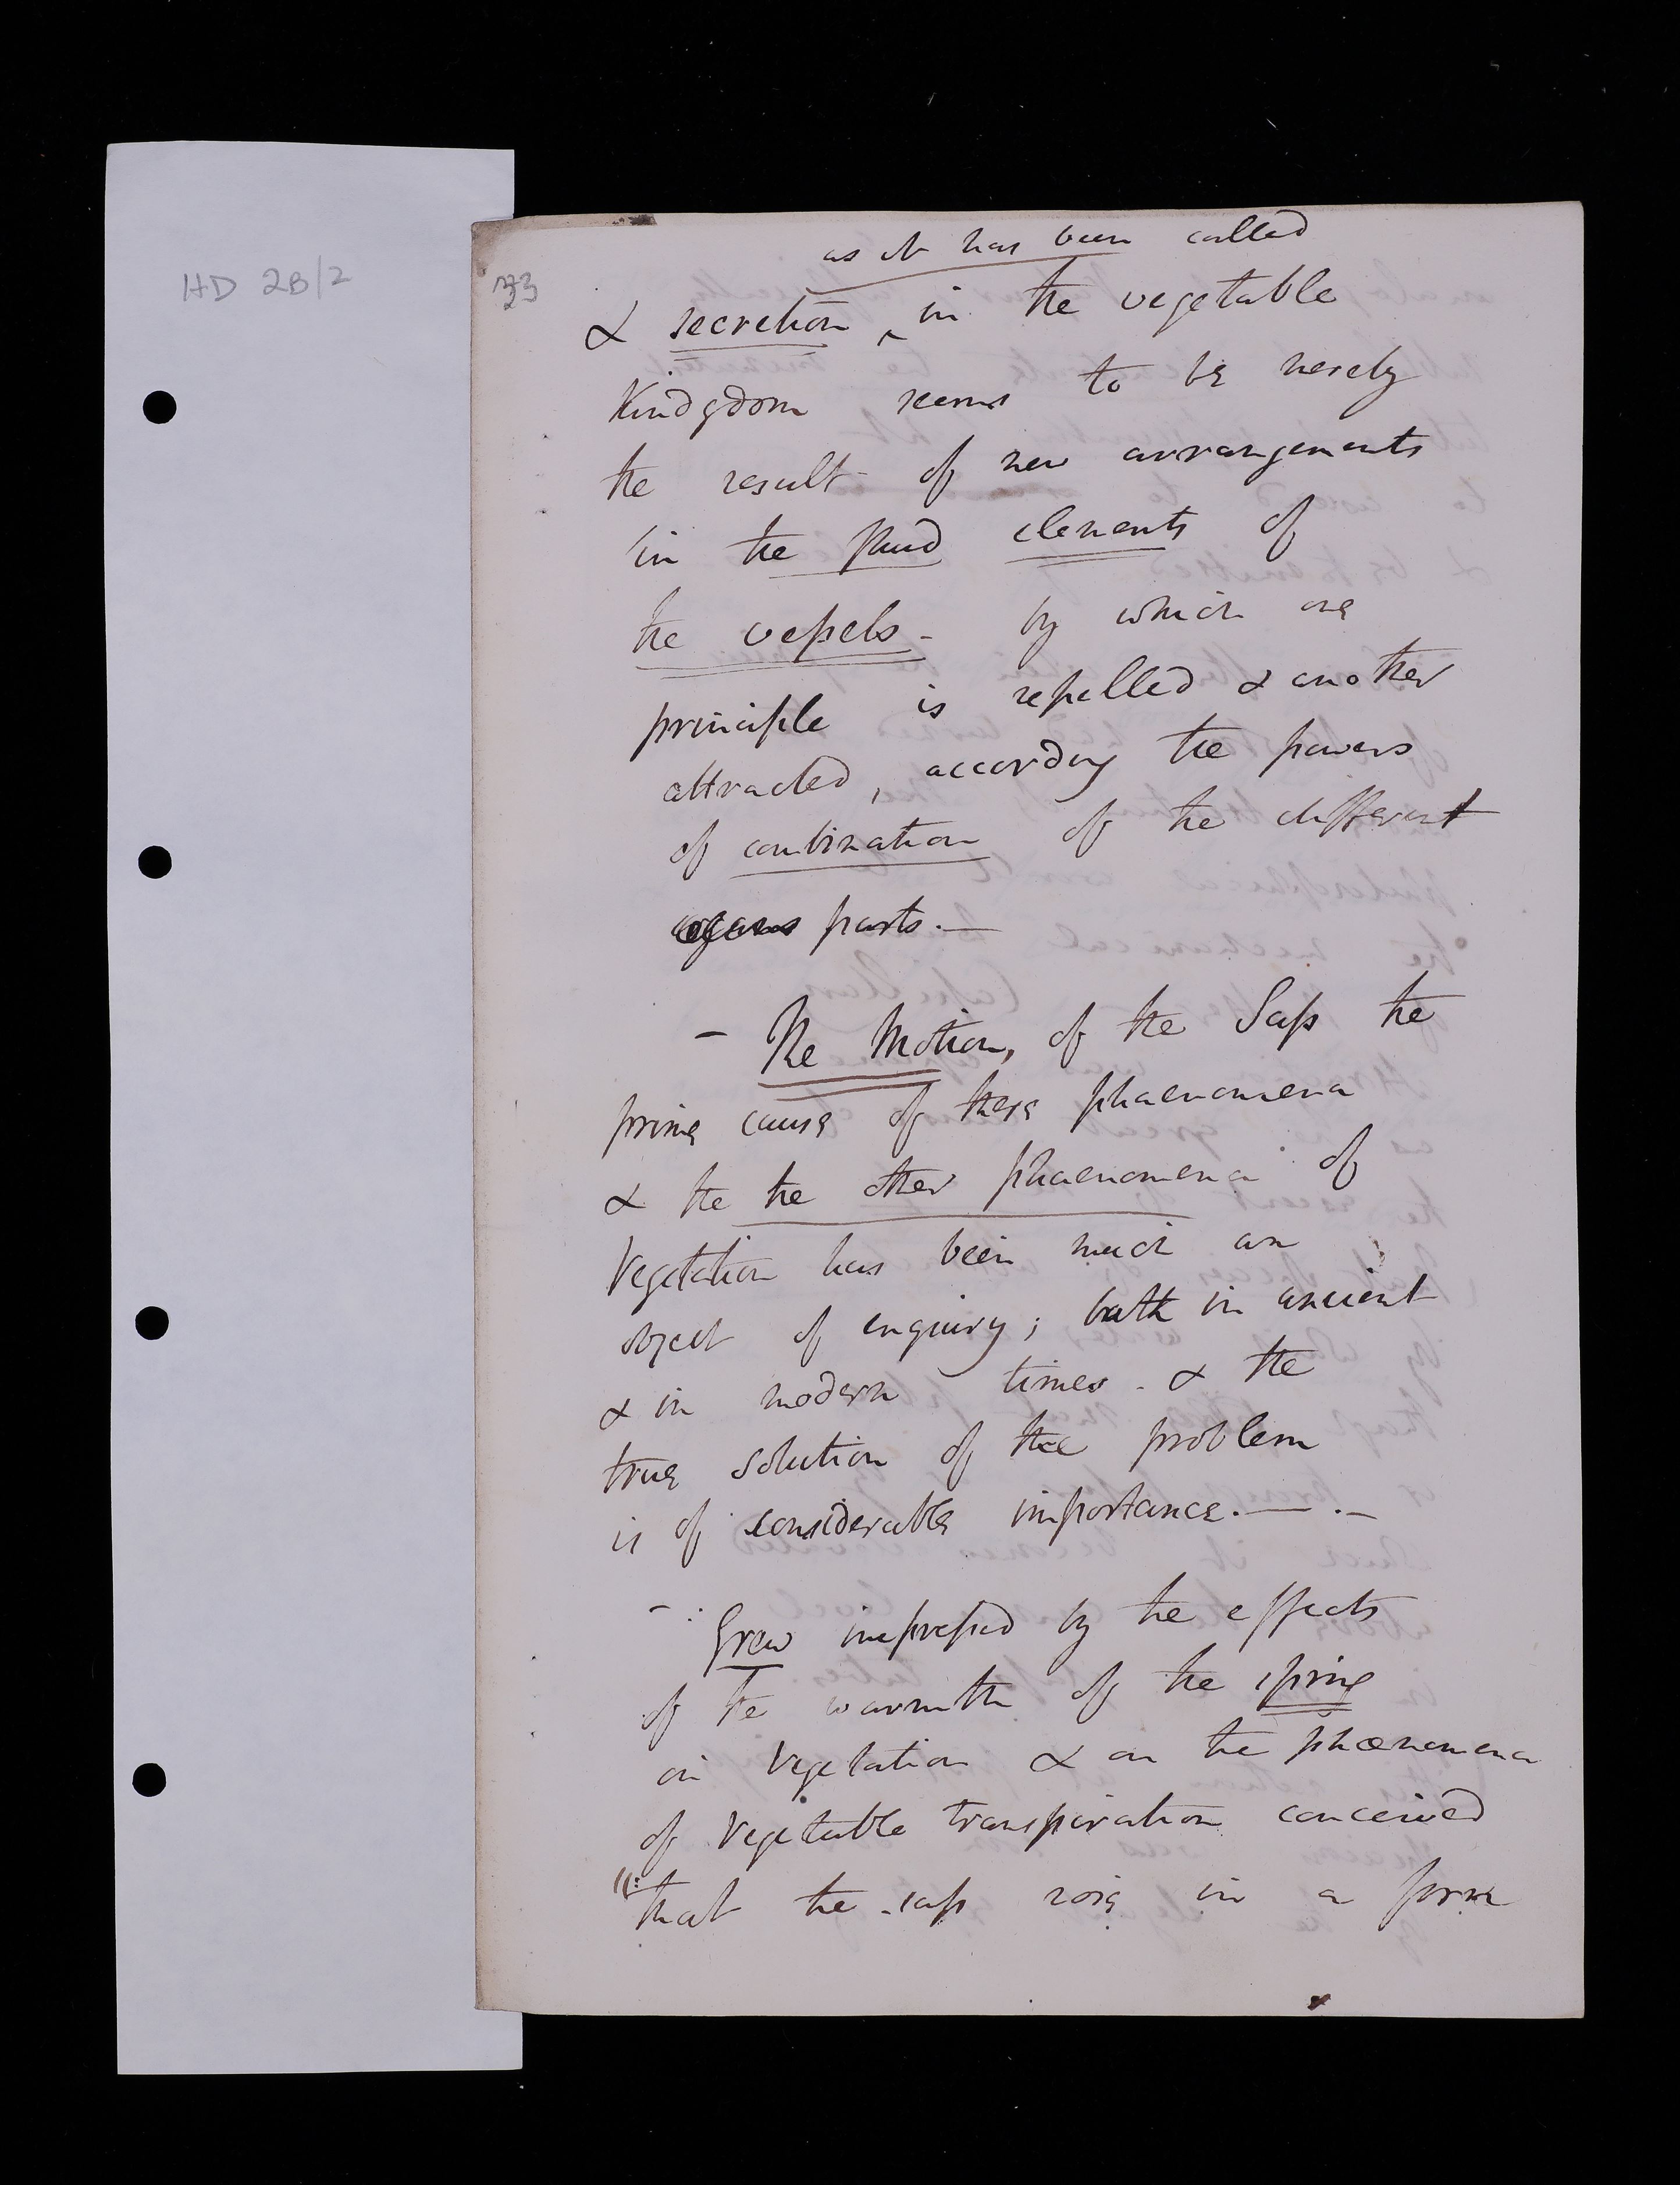 HD 2B/2
33
as it has been called
& secretion ^ in the vegetable
Kindgdom seems to be merely
the result of new arrangements
in the fluid elements of
the vessels - by which one
principle is repelled & another
attracted, according the powers
of combination of the different
organs parts.—
- The Motion, of the Sap the
prime cause of these phaenomena
& the the other phaenomena of
Vegetation has been much an
object of enquiry; both in ancient
& in modern times - & the
true solution of the problem
is of considerable importance. — . —
- : Grew impressed by the effects
of the warmth of the spring
on Vegetation & on the phænomena
of Vegetable transpiration conceived
": that the sap rose in a form